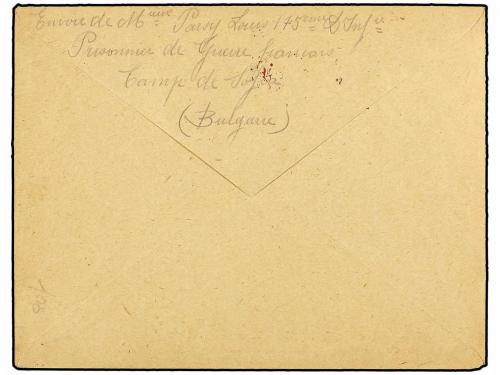 Envoi de M Parsy Louis 145 d'Inf ie
Prisonnier de Guerre français
Camp de Sofia
(Bulgarie)